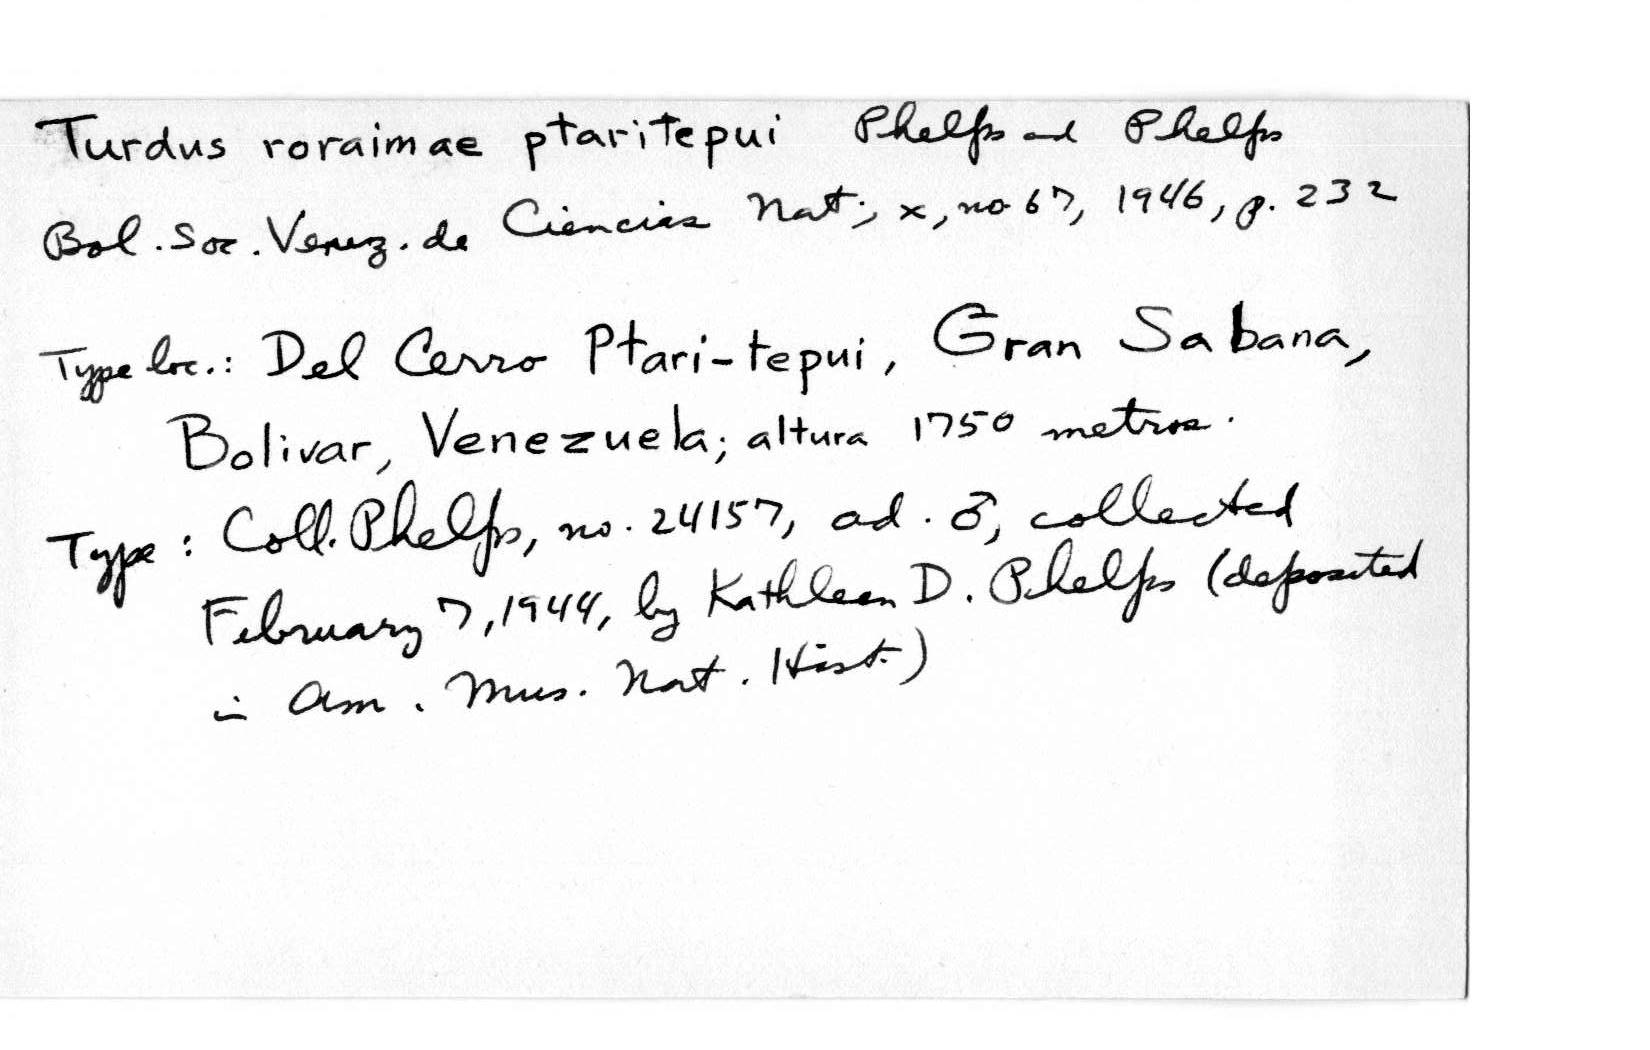 Turdus roraimae ptaritepui Phelps and Phelps
Bol. Soc. Venez. de Ciencias Nat., x, no 67, 1946, p. 232
Type loc.: Del Cerro Ptari-tepui, Gran Sabana,
Bolivar, Venezuela; altura 1750 metros.
Type: Coll. Phelps, no. 24157, ad. ♂, collected
February 7, 1944, by Kathleen D. Phelps (deposited
in Am. Mus. Nat. Hist.)